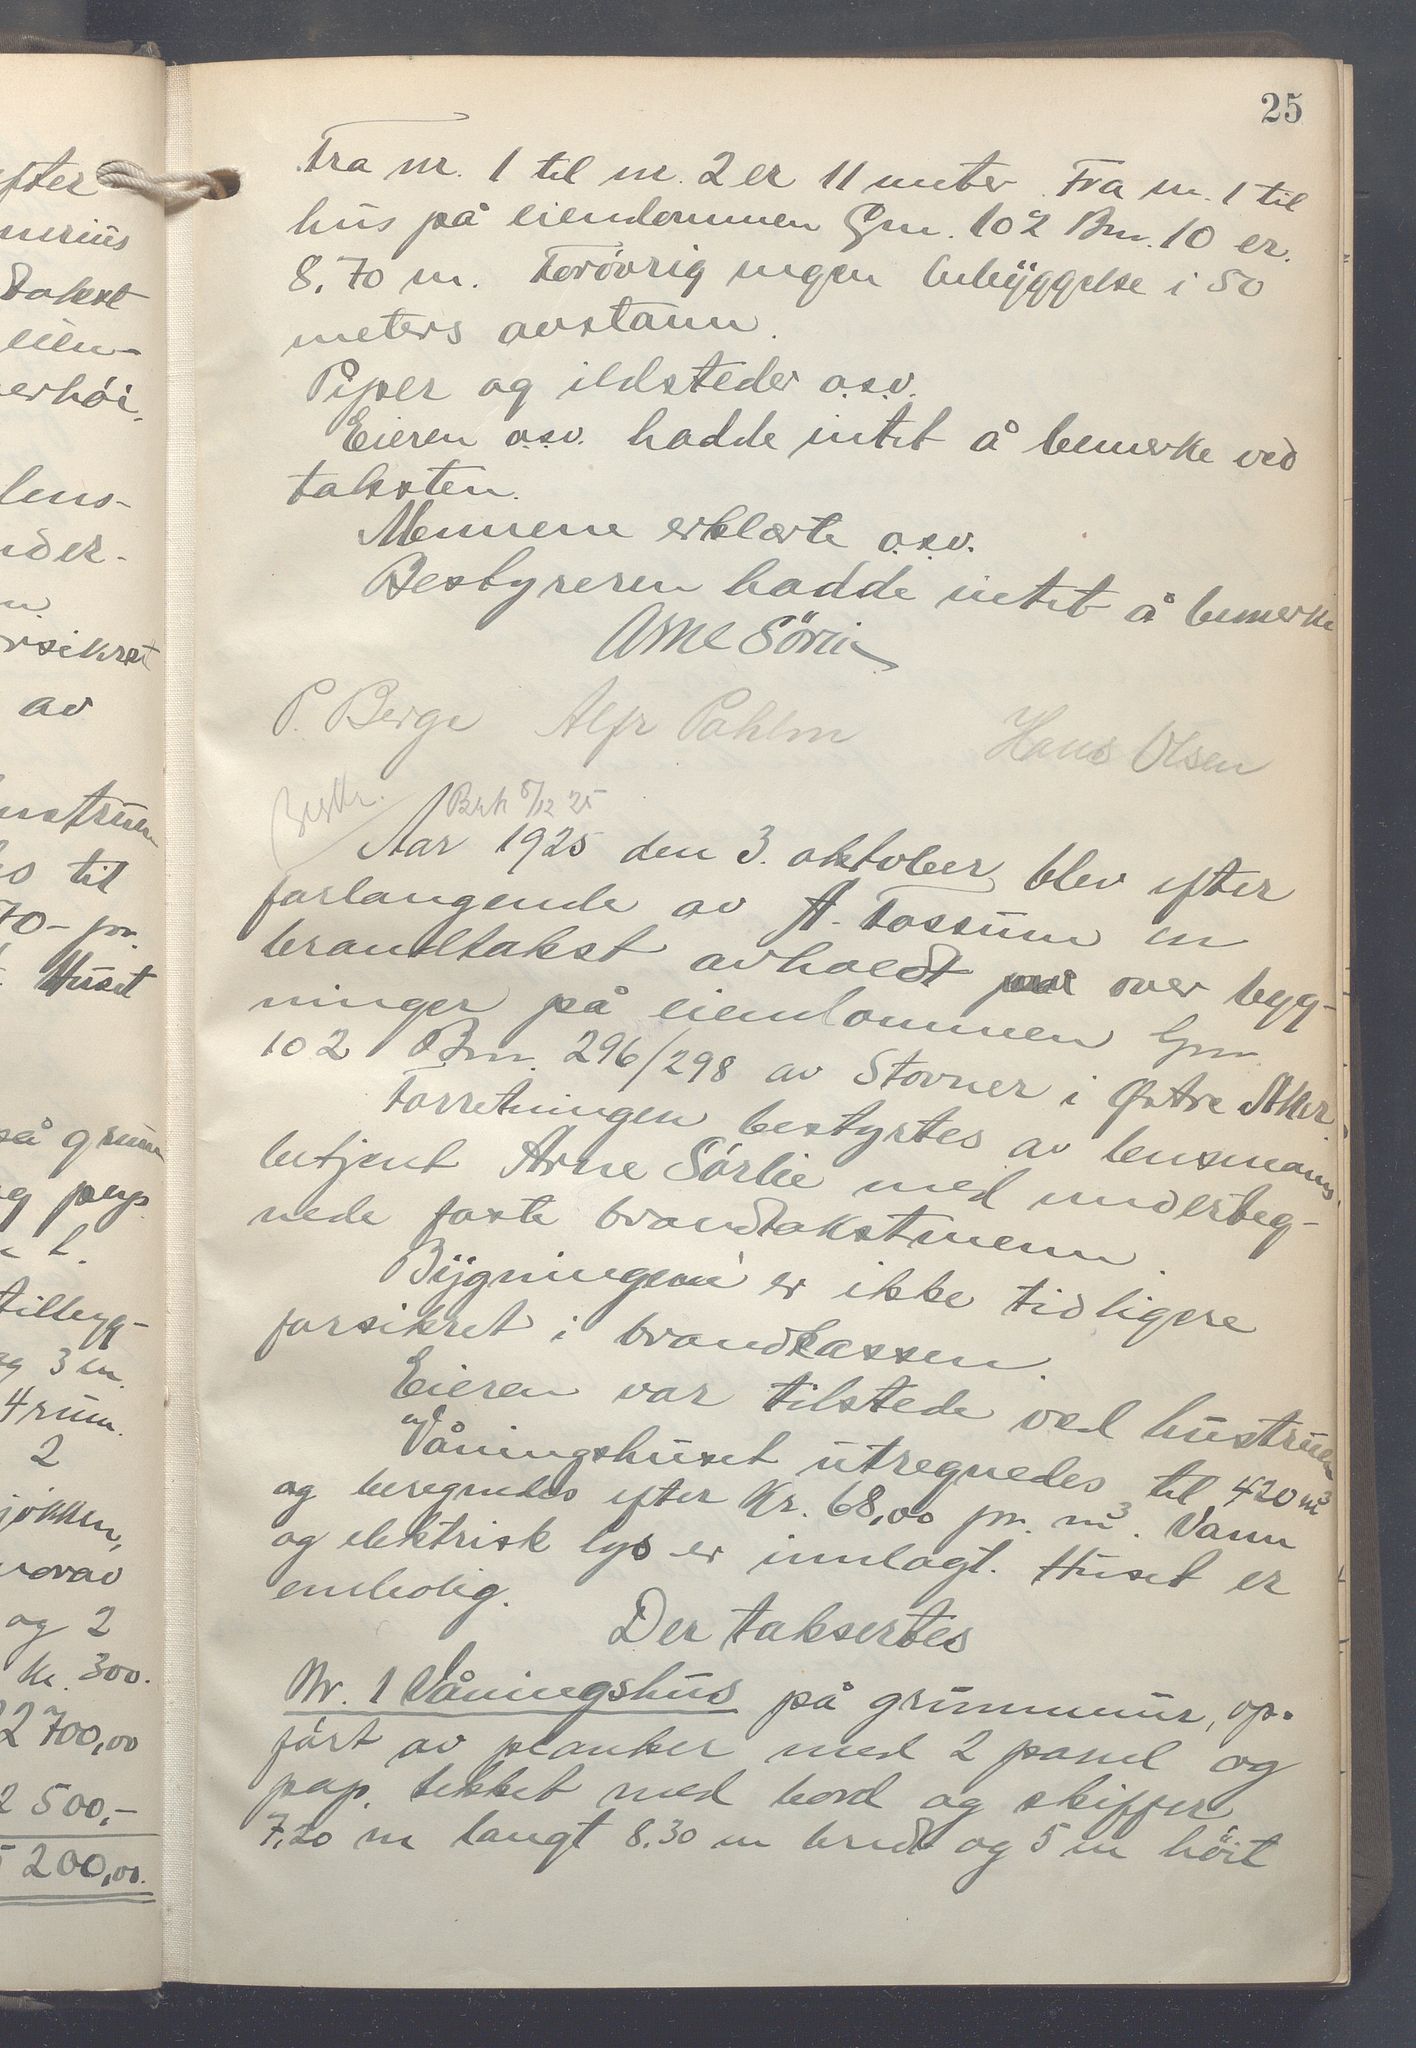 25
Fra nr. 1 til nr. 2 er 11 meter. Fra nr. 1 til
hus på eiendommen Gnr. 102 Bnr. 10 er.
8,70 m. Forøvrig ingen bebyggelse i 50
meters avstann.
Piper og ildsteder o.s.v.
Eieren o.s.v. hadde intet å bemerke ved
taksten.
Mennene erklærte o.s.v.
Bestyreren hadde intet å bemerke
Arne Sörlie
P. Berge Alfr Pahlm Hans Olsen
Beskr. Besk 5/12 25
Aar 1925 den 3. oktober blev efter
forlangende av A. Fossum en
brandtakst avholdt over byg-
ninger på eiendommen Gnr.
102 Bnr. 296/298 av Stovner i Østre Aker.
Forretningen bestyrtes av lensmans-
betjent Arne Sörlie med underteg-
nede faste brandtakstmenn.
Bygningene er ikke tidligere
forsikret i brandkassen.
Eieren var tilstede ved hustruen
Våningshuset utregnedes til 420 m³
og beregnedes efter Kr. 68,00 pr. m³. Vann
og elektrisk lys er innlagt. Huset er
enebolig.
Der taksertes
Nr. 1 Våningshus på grunnmur, op-
ført av planker med 2 panel og
pap. tekket med bord og skiffer
7,20 m langt 8.30 m bredt og 5 m höit
efter
takst
eien-
lens-
av
til
70- pr.
Huset
på grunn
og
tilbygg-
og 3 m.
4 rum.
2
og 2
kr. 300.
2 700,00
2 500,-
5 200,00.